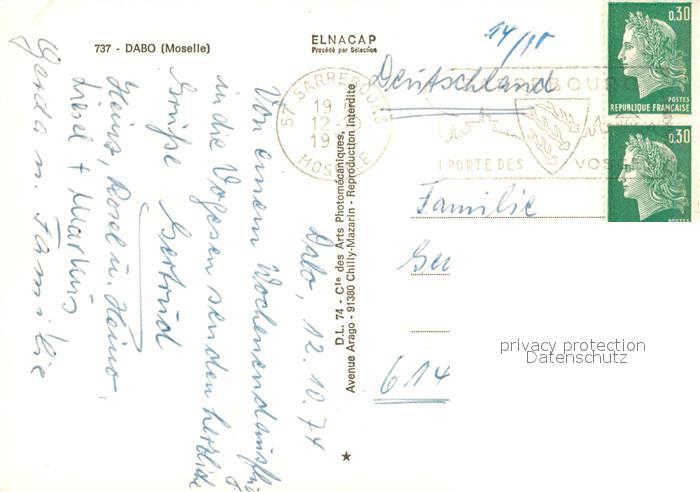 737 - DABO (Moselle)
ELNACAP
Procédé par Sélection
14/10
57 SARREBOURG
19
12
19
MOSELLE
SARREBOURG
PORTE DES VOSGES
0.30
POSTES
REPUBLIQUE FRANÇAISE
0.30
POSTES
Dabo, 12. 10. 74
Von einem Wochenendausflug
in die Vogesen senden herzliche
Grüße Gertrud
Heinz, Rosel u. Heino
Liesel + Markus
Gerda u. Familie
D.L. 74 - Cie des Arts Photomécaniques,
Avenue Arago - 91380 Chilly-Mazarin - Reproduction Interdite
Deutschland
Familie
614
privacy protection
Datenschutz